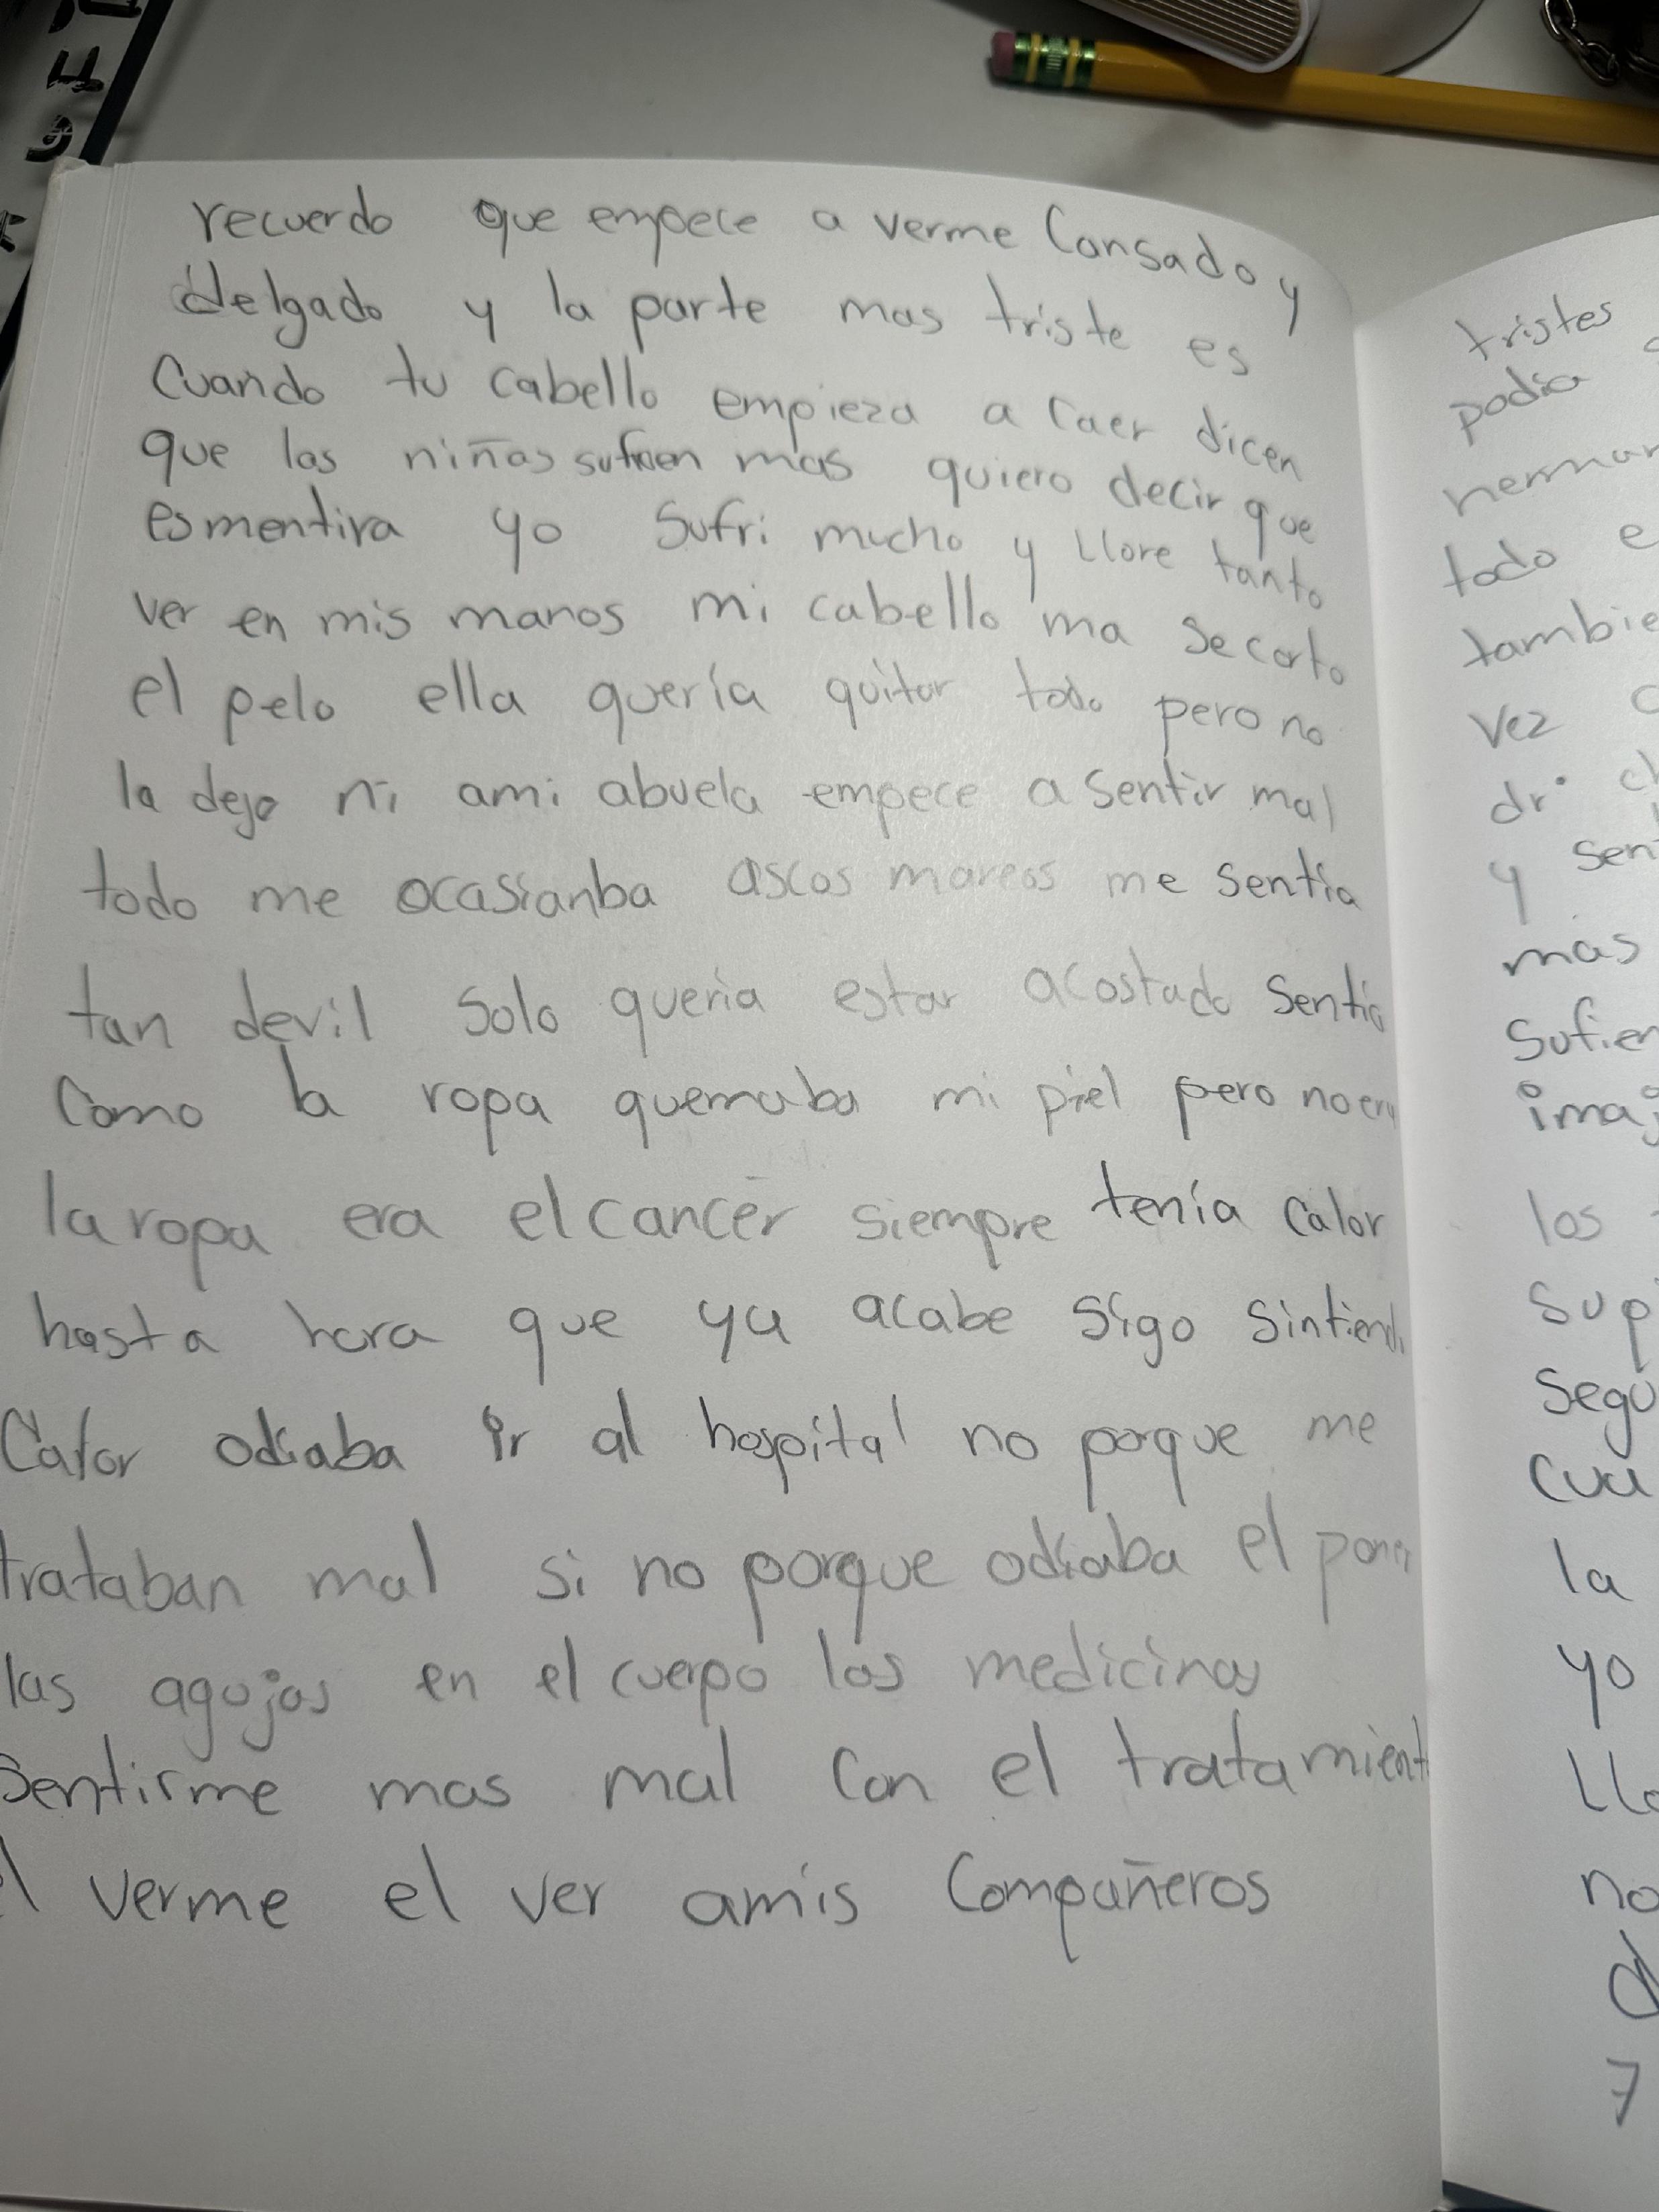 recuerdo que empece a verme Cansado y
delgado y la parte mas triste es
Cuando tu cabello empieza a Caer dicen
que las niñas sufren mas quiero decir que
es mentira yo Sufri mucho y Llore tanto
ver en mis manos mi cabello ma se corto
el pelo ella quería quitar todo pero no
la deje ni ami abuela empece a sentir mal
todo me ocasianba ascos mareos me sentía
tan devil Solo quería estar acostado sentia
Como la ropa quemaba mi piel pero no era
la ropa era el cancer siempre tenía Calor
hasta hora que ya acabe sigo Sintiendo
Calor odiaba ir al hospital no porque me
trataban mal si no porque odiaba el poner
las agujas en el cuerpo las medicinas
Sentirme mas mal Con el tratamient
verme el ver amis Compañeros
tristes
podia
herman
todo e
tambie
vez
dr.
y sen
mas
Sufien
imaj
los
Sup
Segu
Cua
la
yo
Llo
no
d
7